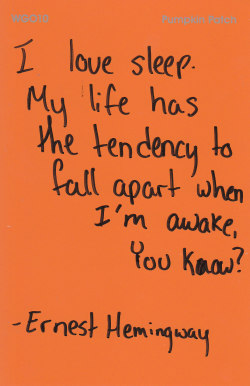 Pumpkin Patch
I love sleep.
My life has
the tendency to
fall apart when
I'm awake,
You know?
- Ernest Hemingway